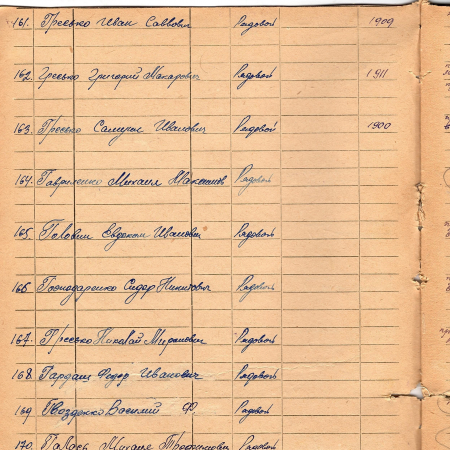 161. Гресько Иван Саввович Рядовой 1909
162. Гресько Григорий Макарович Рядовой 1911
163. Гресько Самуил Иванович Рядовой 1900
164. Гавриленко Михаил Рядовой
165. Головин Евдоким Иванович Рядовой
166. Сидор Никитович Рядовой
167. Гресько Николай Рядовой
168. Гардаш Федор Иванович Рядовой
169 Гвозденко Василий Ф. Рядовой
170. Михаил Трофимович Рядовой